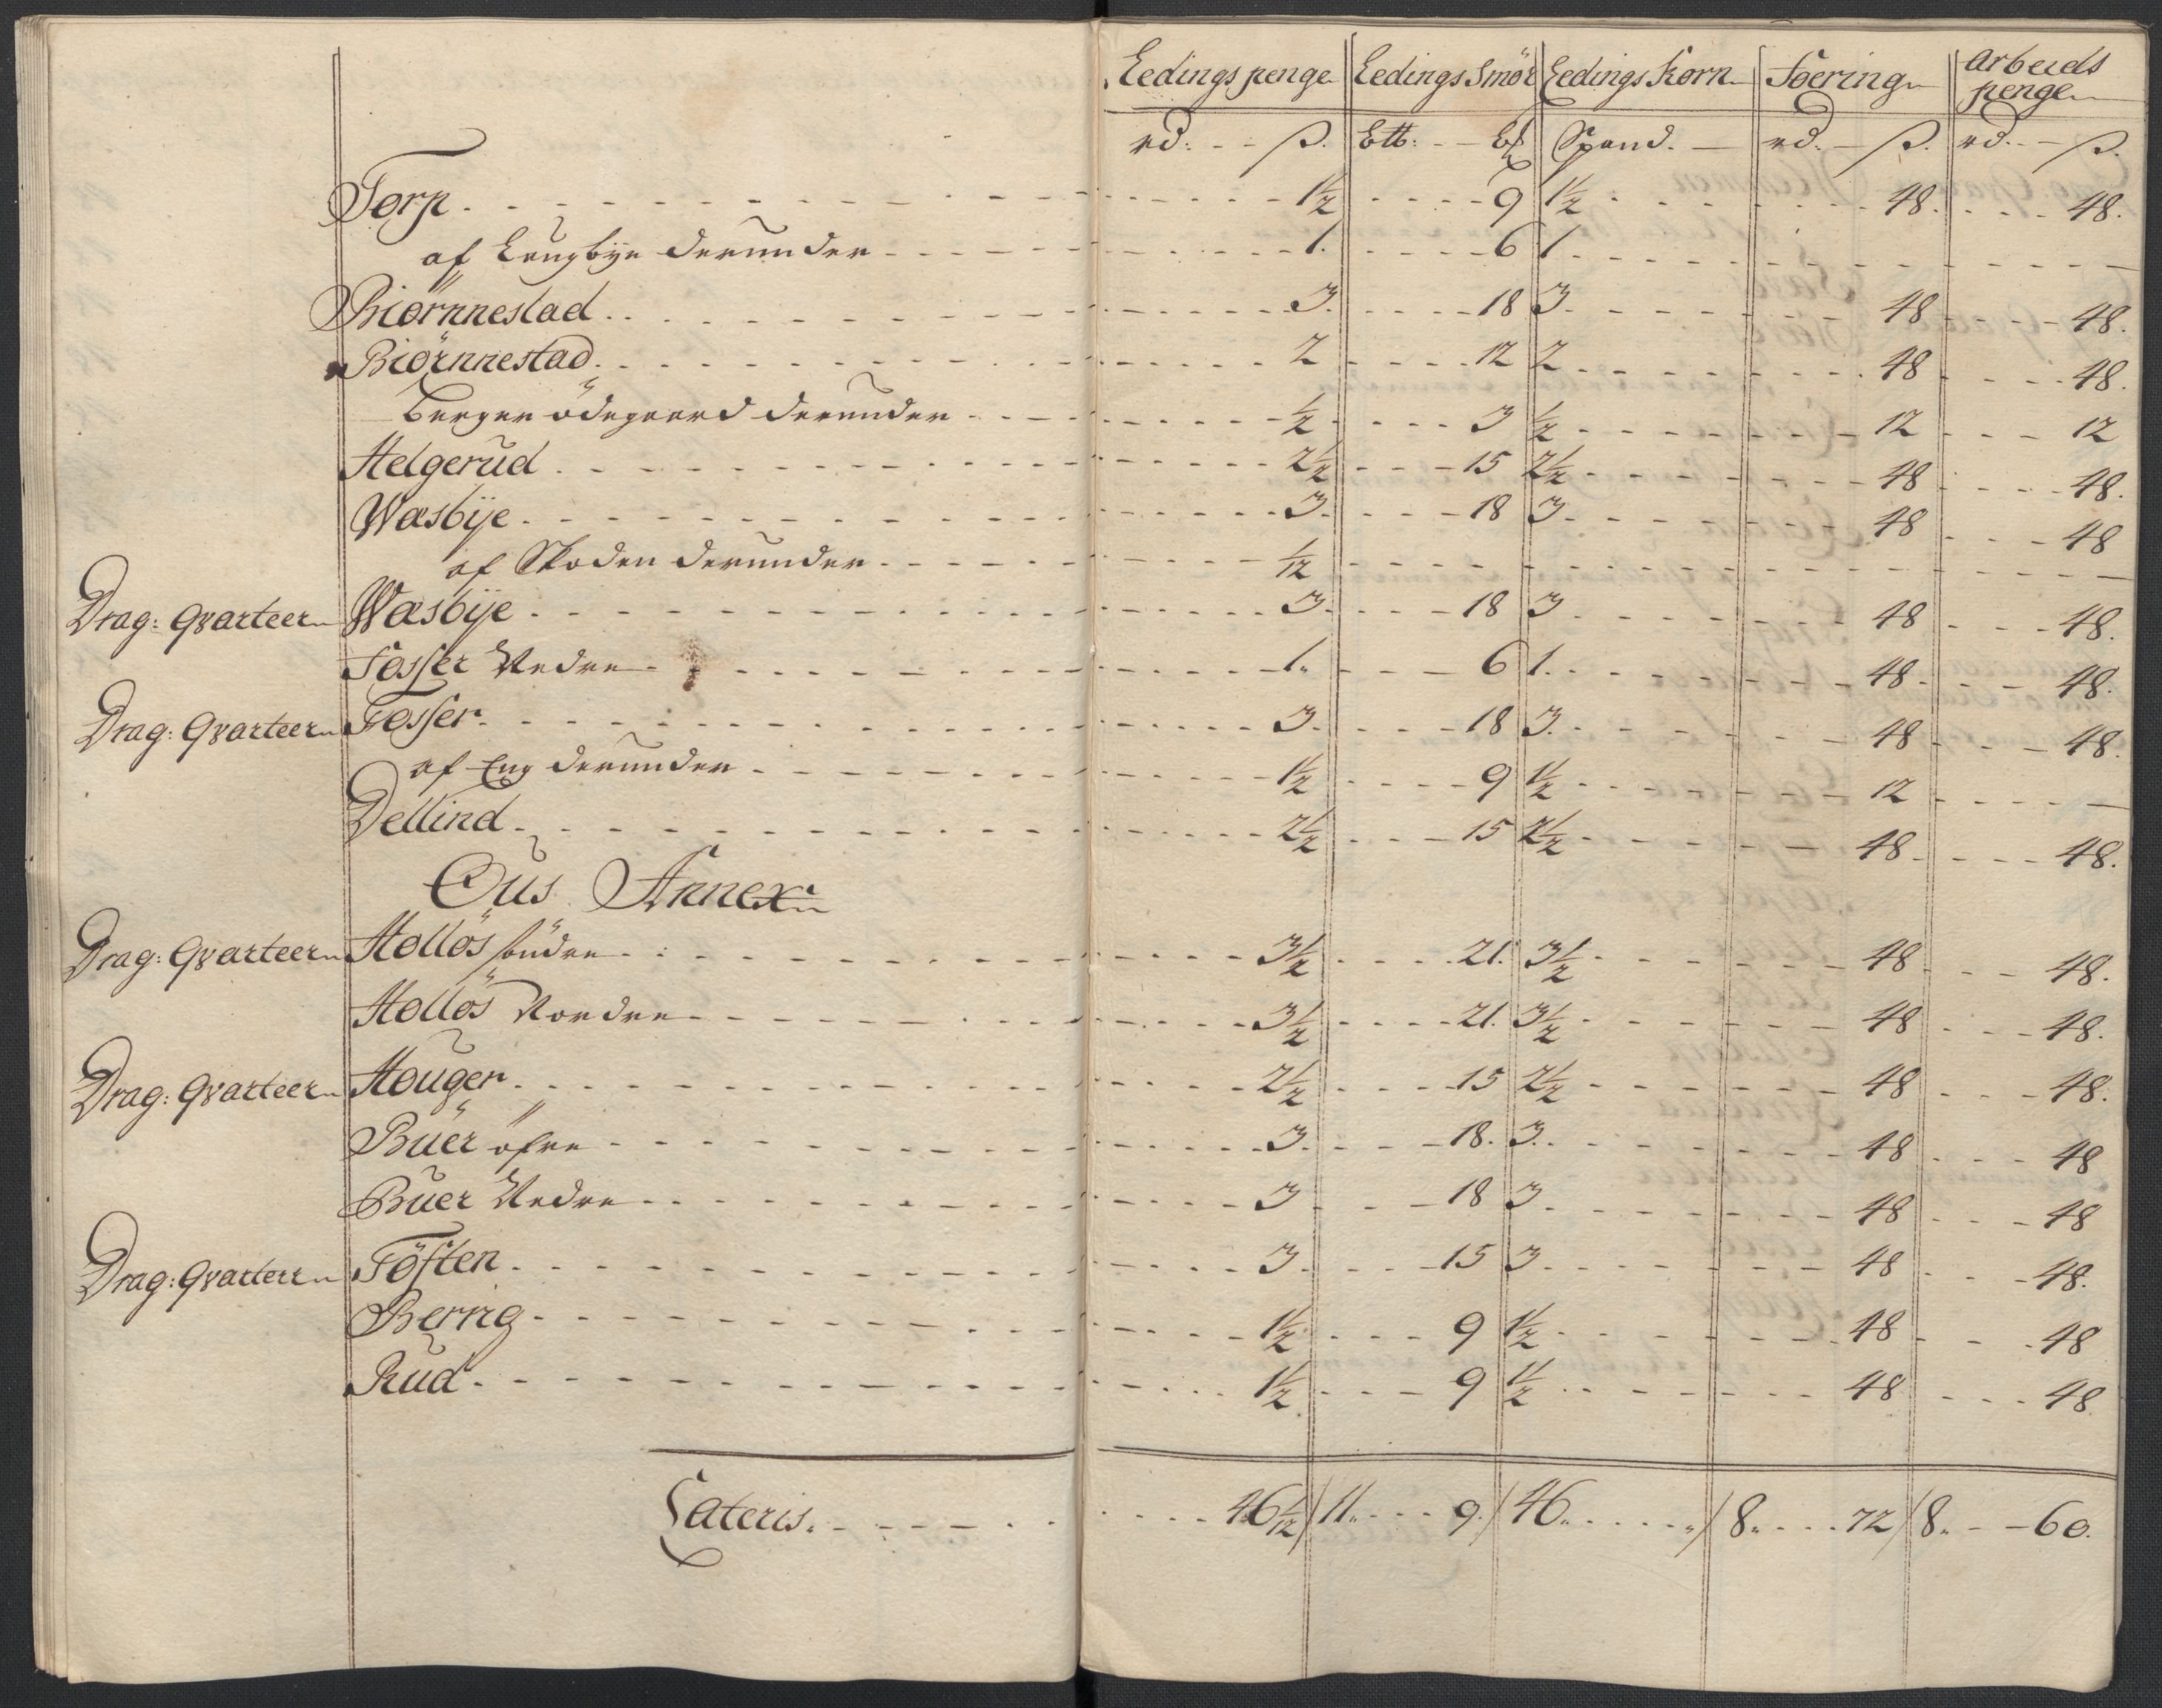 Ledings penge Ledings Smör Ledings Korn Foering Arbeids penge
rd: ß. Spand. rd. ß. rd. ß.
Torp 1½ 9 1½ 48. 48.
af Langbye derunder 1. 6 1
Biörnnestad 3. 18 3. 48 48.
Biörnnestad 2 12 2 48 48.
Berger ödegaard derunder ½ 3 ½ 12 12
Helgerud 2½ 15 2½ 48 48.
Wæsbÿe 3. 18 3. 48 48
af Skoden derunder 1/12
Drag: Qvarteer Wæsbÿe 3. 18 3 48 48.
Fosser Nedre 1. 6 1. 48. 48.
Drag: Qvarteer Fosser 3. 18 3. 48 48.
af Eng derunder 1½ 9 1½ 12
Dellind 2½ 15 2½ 48. 48.
Ous Annex
Drag: Qvarteer Hollös söndre 3½ 21. 3½ 48 48.
Hollös Nordre 3½ 21. 3½ 48 48.
Drag: Qvarteer Houger 2½ 15 2½ 48 48.
Buer öfre 3. 18. 3. 48 48
Buer Nedre 3 18 3. 48 48
Drag: Qvarteer Töften 3. 15 3. 48 48.
Berrig 1½ 9 1½ 48 48
Rud 1½ 9 1½ 48 48
Lateris. 46 1/12 / 11. 9. / 46. / 8. 72 / 8. 60.